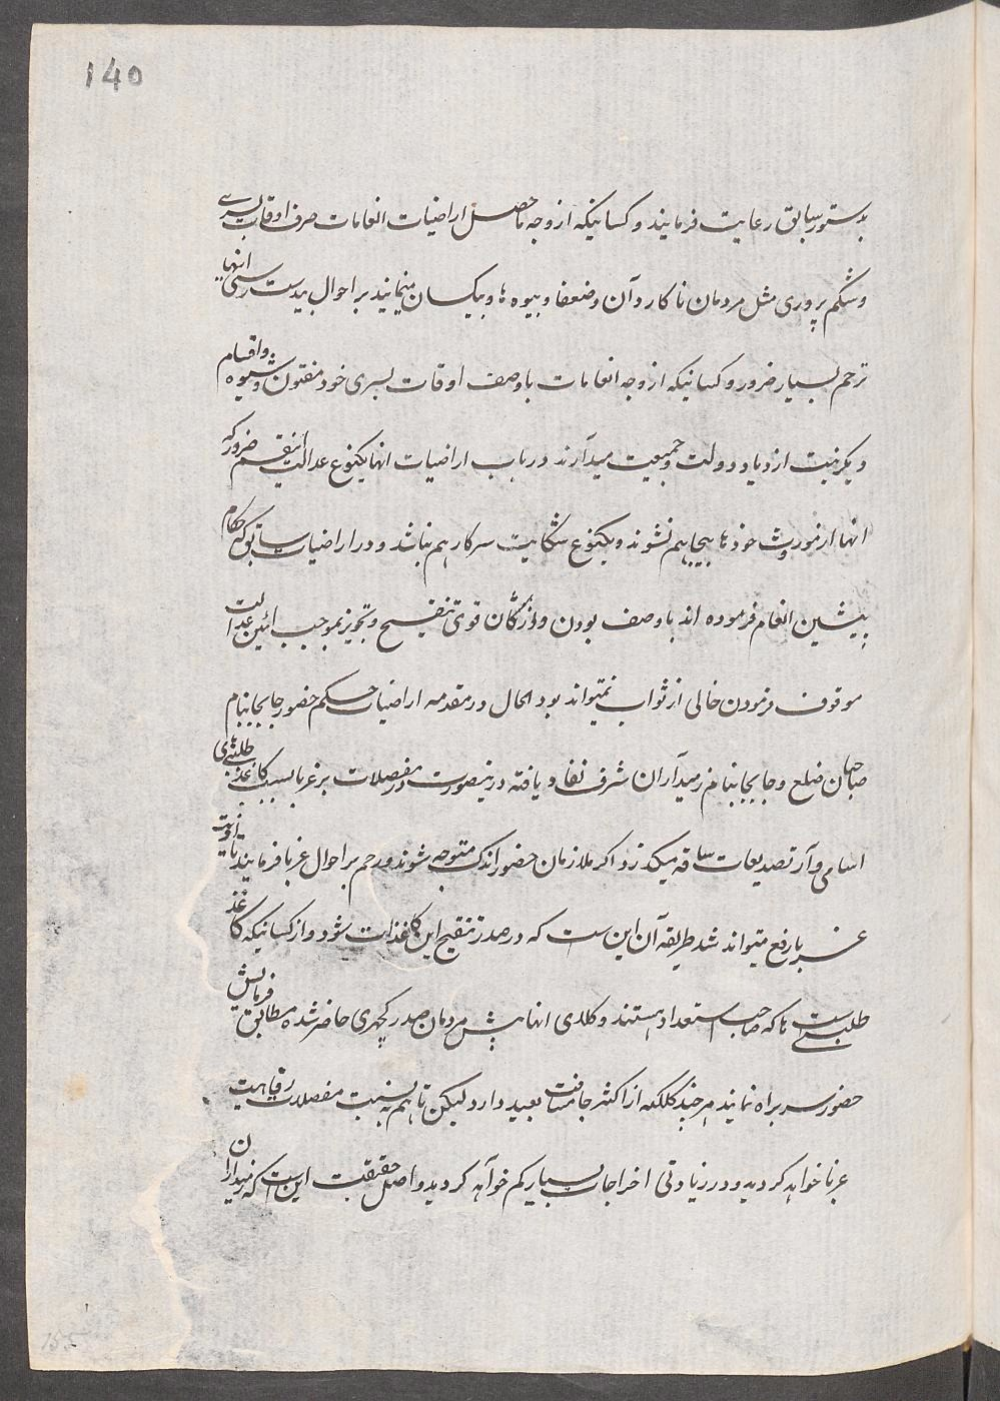 140
بدستور سابق رعایت فرمایند و کسانیکه از وجه ماحصل اراضیات انعامات صرف اوقات بسری
و شکم پروری مثل مردمان ناکاردآن و ضعفا و بیوه ها و بیکسان مینمایند بر احوال بیدست رسی انها
ترحم بسیار ضرور و کسانیکه از وجه انعامات باوصف اوقات بسری خود مفتون شیوه و اقسام
دیکر نیت ازدیاد دولت و جمعیت میدآرند در باب اراضیات انها یکنوع عدالت اینقسم ضرور که
انها از موروث خودها بیجا هم نشوند و یکنوع شکایت سرکار هم نباشد و در اراضیات سابق که حکام
پیشین انعام فرموده اند باوصف بودن وارثان قوی تنقیح و تجویز بموجب ائین عدالت
موقوف فرمودن خالی از ثواب نمیتواند بود الحال در مقدمه اراضیات حکم حضور جابجا بنام
صاحبان ضلع و جابجا بنام زمیدآران شرف نفاد یافته درینصورت در مفصلات بر غربا بسبب کاغذ طلبی های
اسامی وآر تصدیعات شاقه میکذرد اکر ملازمان حضور اندک متوجه شوند و رحم بر احوال غربا فرمایند تا اذیت
غربا رفع میتواند شد طریقه آن این ست که در صدر تنقیح این کاغذات شود و از کسانیکه کاغذ
طلب است تا که صاحب استعداد هستند وکلای انها پیش مردمان صدر کچهری حاضر شده مطابق فرمایش
حضور سربراه نمایند هرچند کلکته از اکثر جا مسافت بعید دارد لیکن تا هم به نسبت مفصلات رفاهیت
غربا خواهد کردید و در زیادتی اخراجات بسیار کم خوآهد کردید و اصل حقیقت این است که زمیداران
155